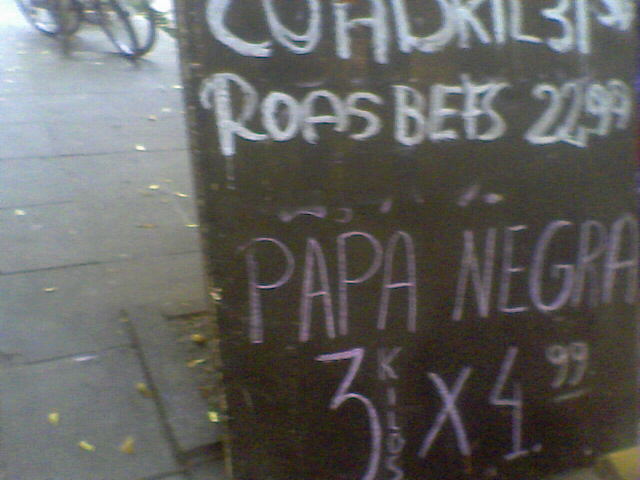 CUADRIL 31,99
ROASBEFS 22,99
PAPA NEGRA
3 KILOS X 4.99